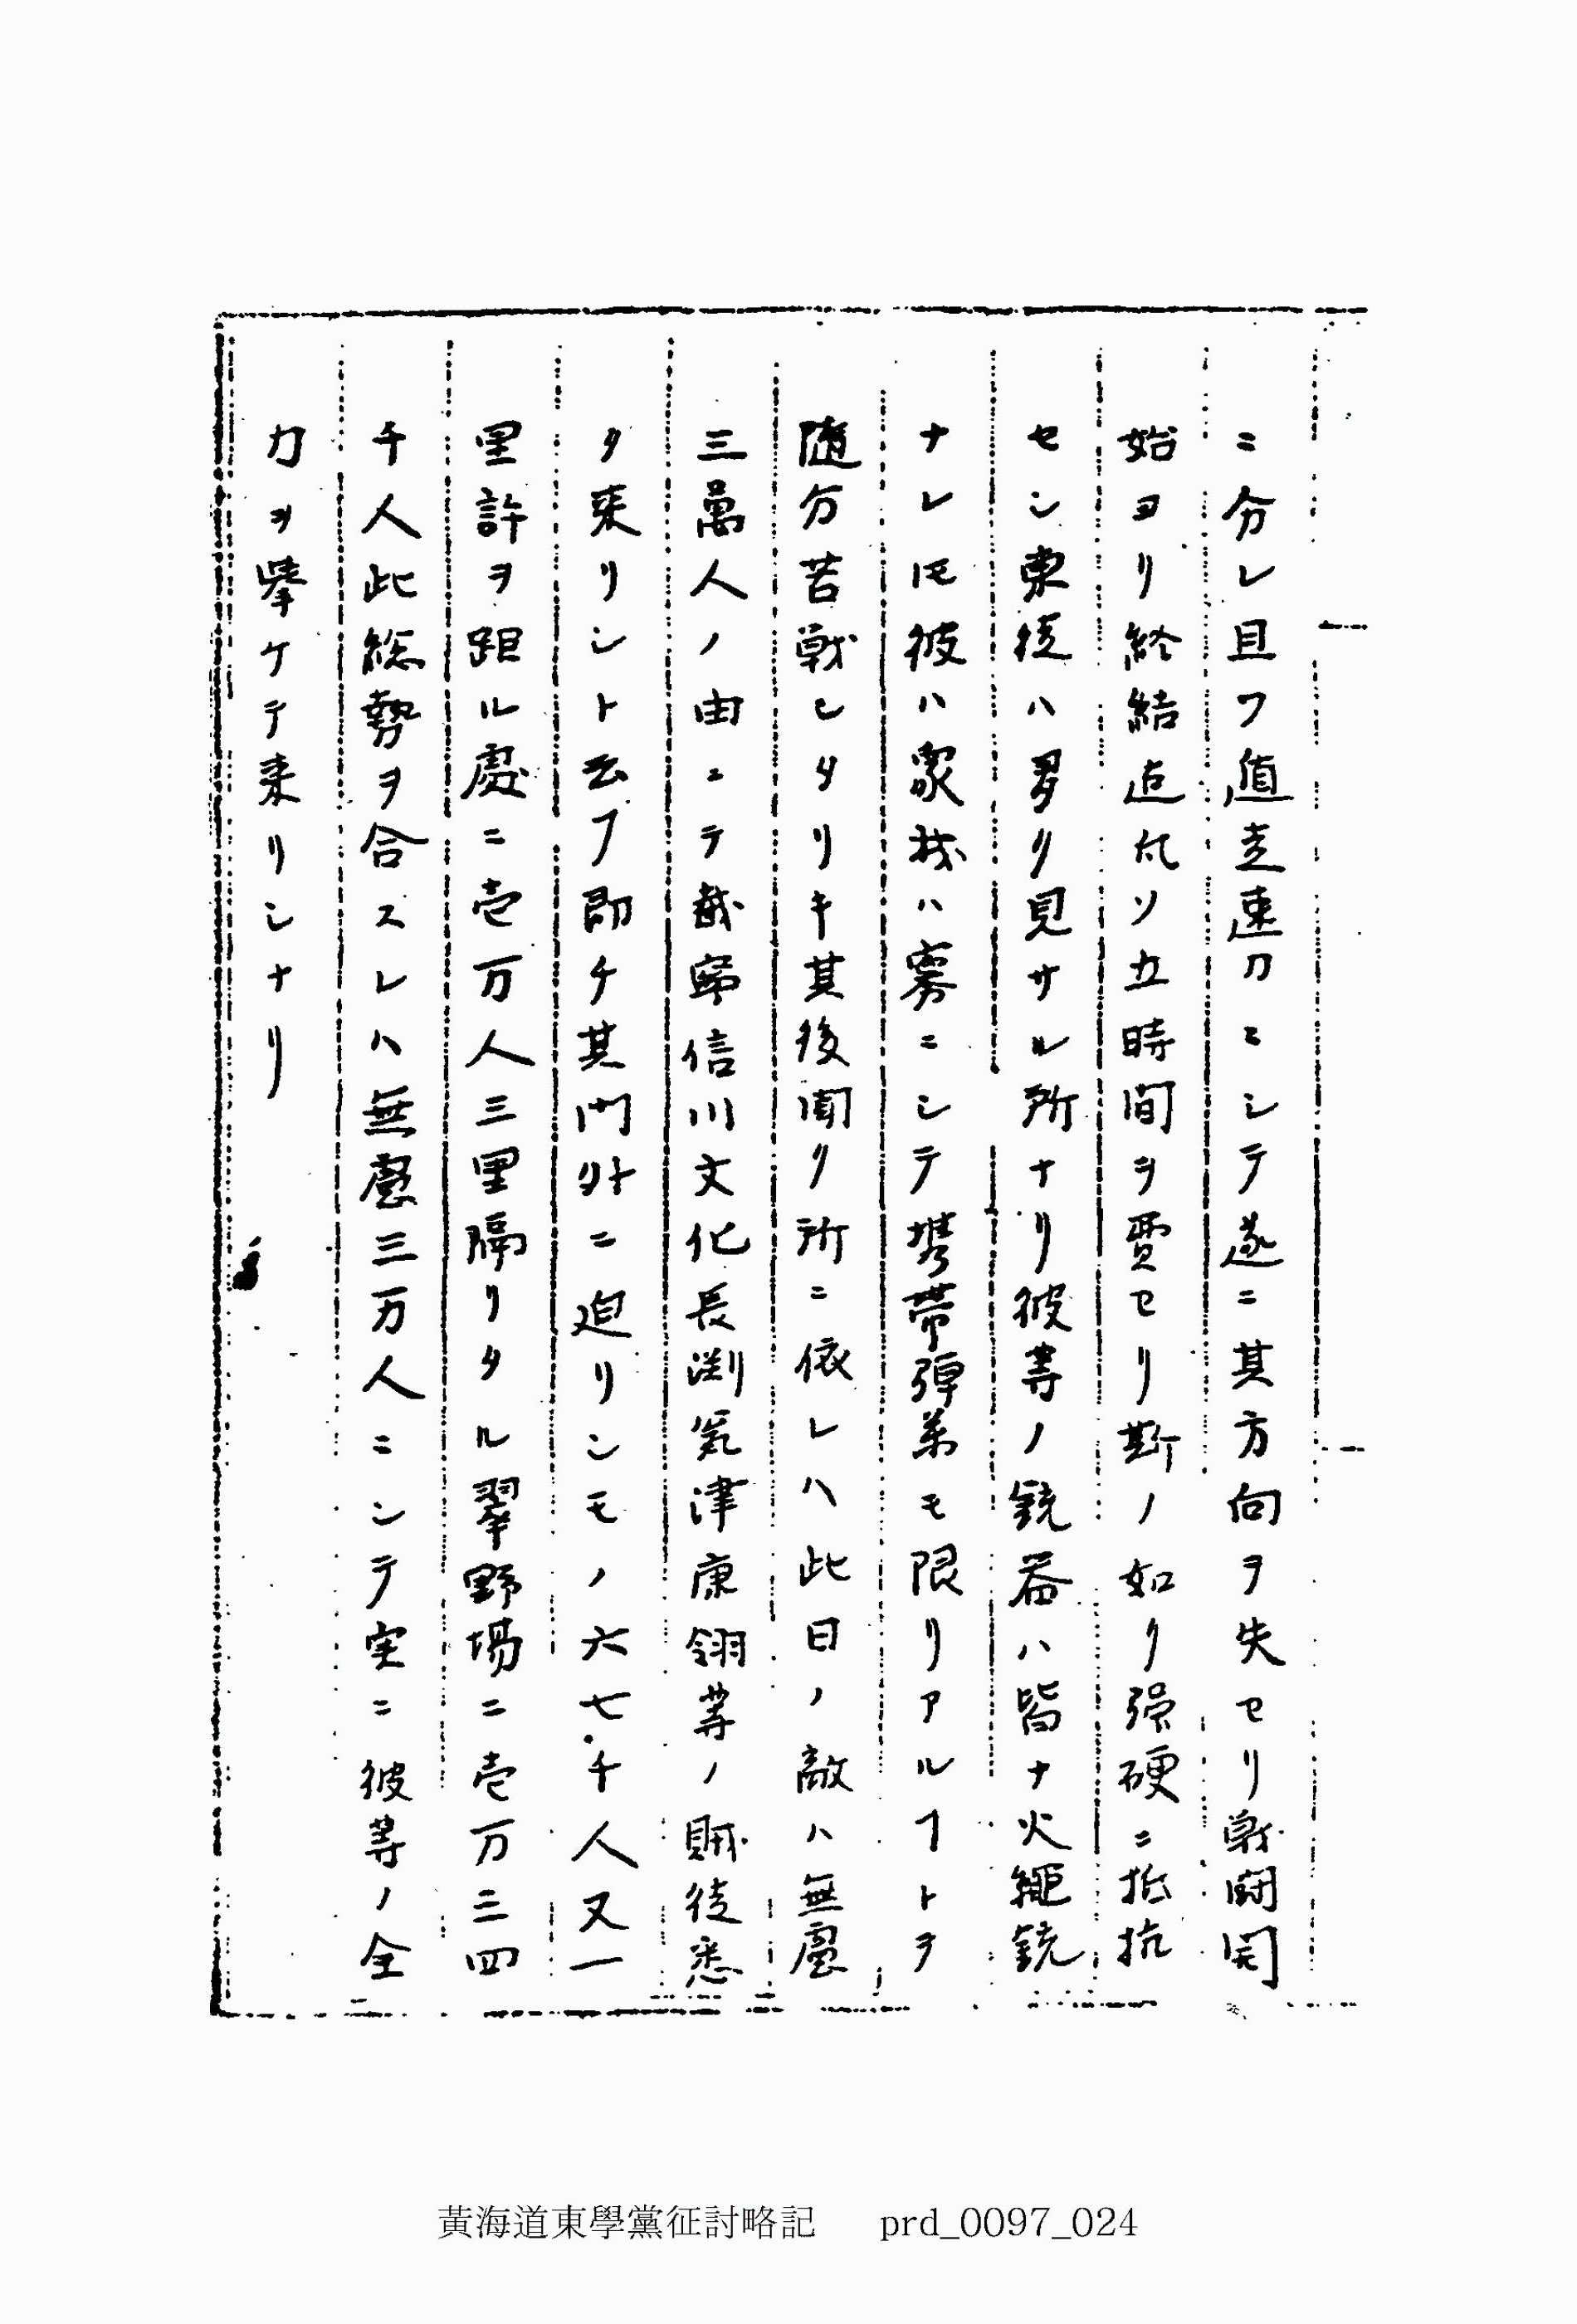 ニ分レ且フ値走速刀ニシテ遂ニ其方向ヲ失セリ戦闘開
始ヨリ終結迠凡ソ五時間ヲ費セリ斯ノ如ク强硬ニ抵抗
セシ東徒ハ多ク見サル所ナリ彼等ノ銃器ハ皆ナ火繩銃
ナレ𪜈彼ハ衆我ハ寡ニシテ携帯弾薬モ限リアルヿトヲ
随分苦戦シタリキ其後聞ク所ニ依レハ此日ノ敵ハ無慮
三萬人ノ由ニテ載寧信川文化長渕瓮津康翎等ノ賊徒悉
ク来リシト云フ即チ其門外ニ迫リシモノ六七千人又一
里許ヲ距ル處ニ壱万人三里隔リタル翠野場ニ壱万三四
千人此総勢ヲ合スレハ無慮三万人ニシテ実ニ彼等ノ全
力ヲ挙ケテ来リシナリ
黃海道東學黨征討略記 prd_0097_024